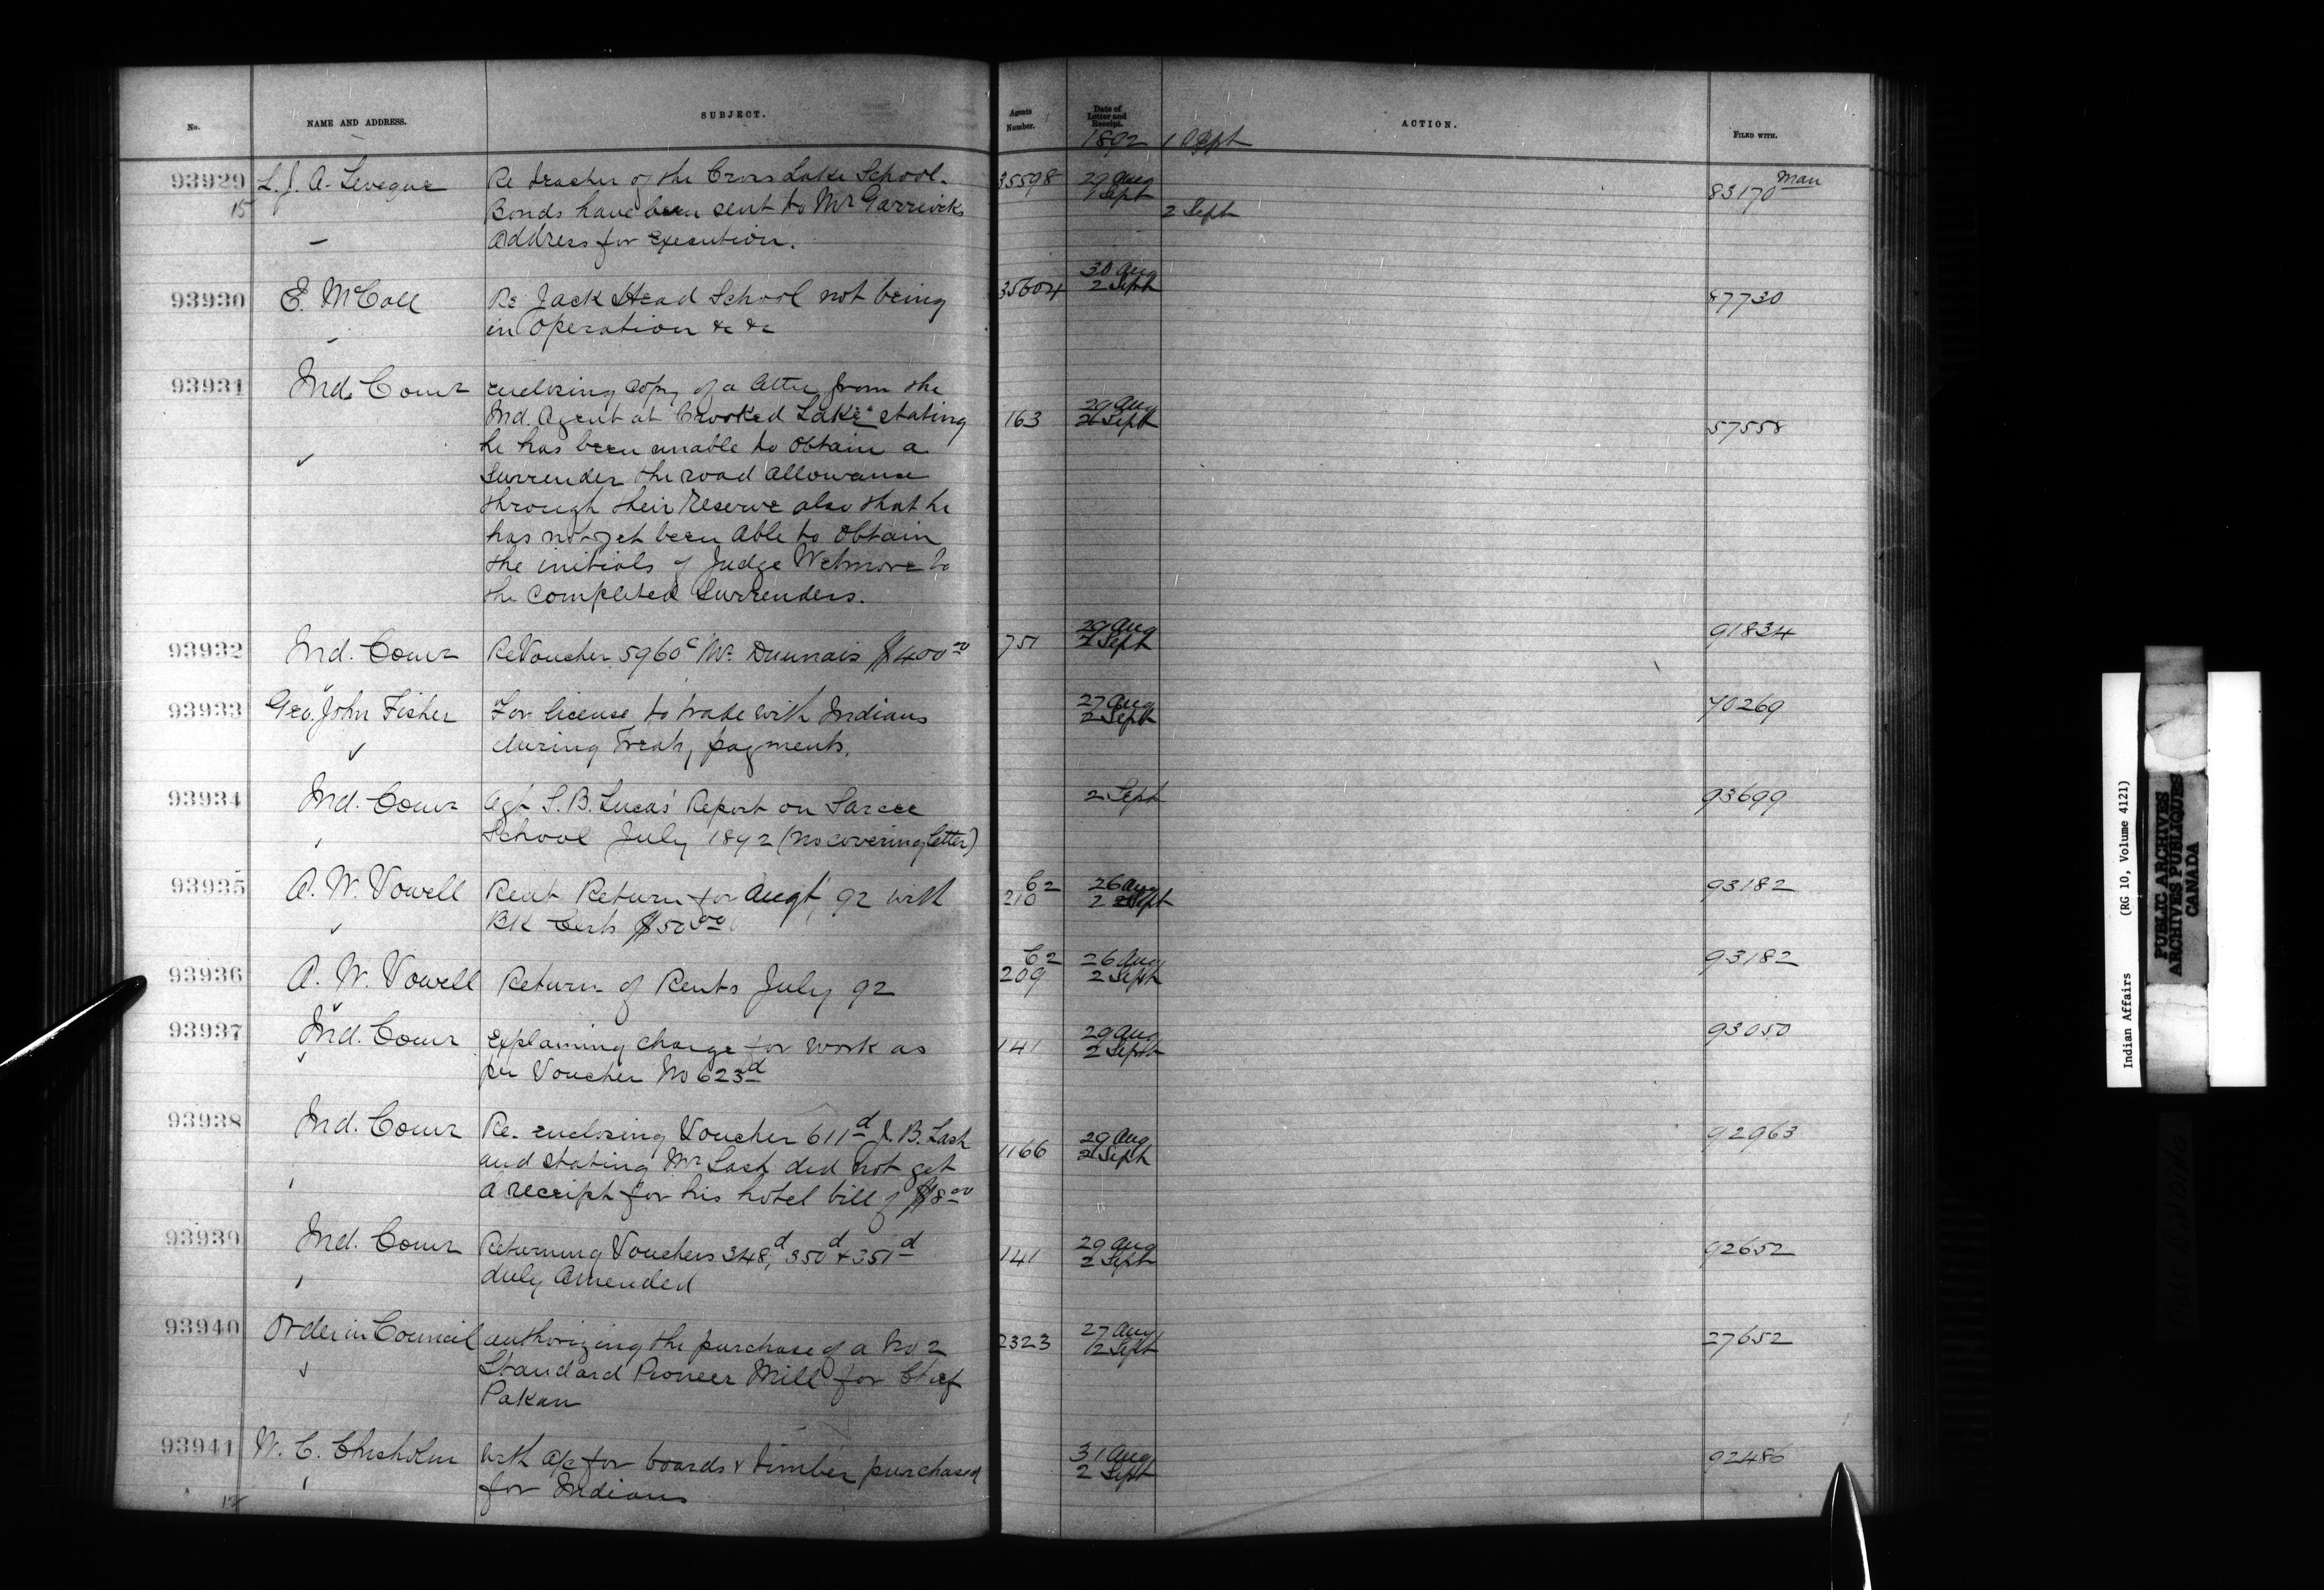 No.
NAME AND ADDRESS.
SUBJECT.
Agents Number.
Date of Letter and Receipt.
ACTION.
FILED WITH.
1892 1 Sept
93929 L. J. A. Leveque Re teacher of the Cross Lake School. 35598 29 Aug 83170 Man
15 Bonds have been sent to Mr Garriocks 1 Sept 2 Sept
Address for Execution.
93930 E. McColl Re Jack Head School not being 35604 30 Aug 2 Sept 87730
in operation &c &c
93931 Ind. Comr enclosing copy of a letter from the
Ind. Agent at Crooked Lake stating 163 29 Aug 2 Sept 57558
he has been unable to obtain a
surrender the road allowance
through their Reserve also that he
has not yet been able to obtain
the initials of Judge Wetmore to
the completed Surrenders.
93932 Ind. Comr Re Voucher 5960c Mr. Dumais $400.00 751 29 Aug 2 Sept 91834
93933 Geo. John Fisher For license to trade with Indians 27 Aug 2 Sept 70269
during Treaty payments.
93934 Ind. Comr Agt S. B. Lucas' Report on Sarcee 2 Sept 93699
School July 1892 (no covering letter)
93935 A. W. Vowell Rent Return for Augt 92 with C2 210 26 Aug 2 Sept 93182
BK Certs $50.00
93936 A. W. Vowell Return of Rents July 92 C2 209 26 Aug 2 Sept 93182
93937 Ind. Comr Explaining charge for work as 141 29 Aug 2 Sept 93050
per Voucher No 623d
93938 Ind. Comr Re. enclosing Voucher 611d J. B. Lash 1166 29 Aug 2 Sept 92963
and stating Mr Lash did not get
a receipt for his hotel bill of $8.00
93939 Ind. Comr Returning Vouchers 348d, 350d & 351d 141 29 Aug 2 Sept 92652
duly Amended
93940 Order in Council authorizing the purchase of a No 2 2323 27 Aug 2 Sept 27652
Standard Pioneer Mill for Chief
Pakan
93941 W. C. Chisholm With a/c for boards & timber purchased 31 Aug 2 Sept 92486
for Indians
Indian Affairs (RG 10, Volume 4121)
PUBLIC ARCHIVES
ARCHIVES PUBLIQUES
CANADA